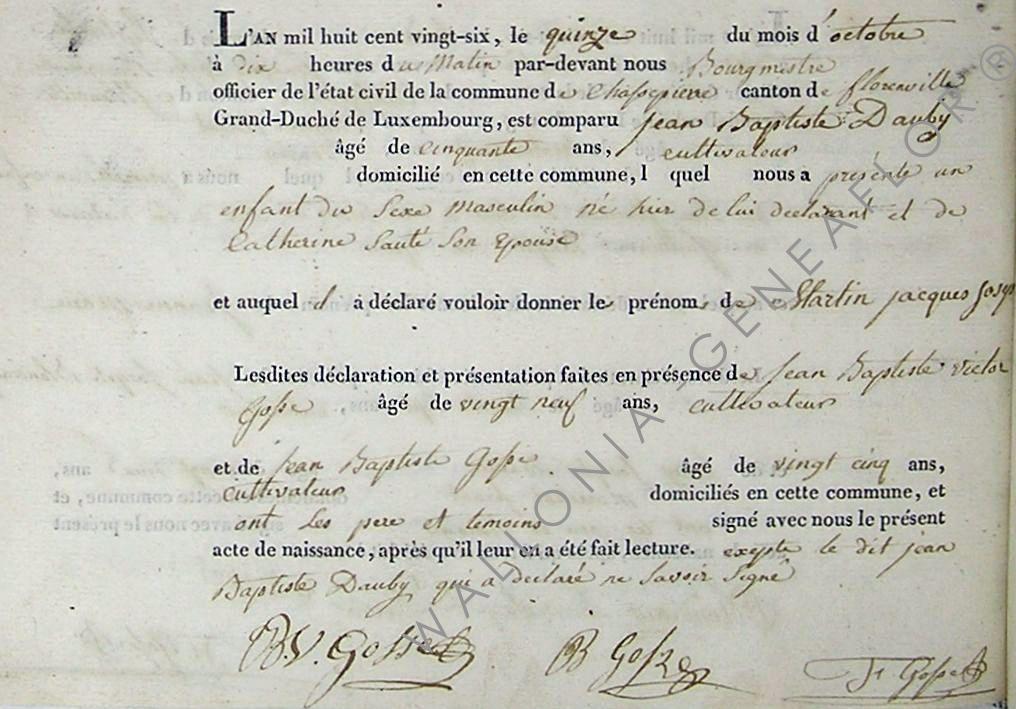 L'AN mil huit cent vingt-six, le quinze du mois d'octobre
à dix heures du Matin par-devant nous Bourgmestre
officier de l'état civil de la commune de Chassepierre canton de florenville
Grand-Duché de Luxembourg, est comparu Jean Baptiste Dauby
âgé de cinquante ans, cultivateur
domicilié en cette commune, l quel nous a présenté un
enfant du Sexe Masculin né hier de lui declarant et de
Catherine Sauté Son Epouse
et auquel il a déclaré vouloir donner les prénoms de Martin jacques Joseph
Lesdites déclaration et présentation faites en présence de Jean Baptiste Victor
Gosse âgé de vingt neuf ans, cultivateur
et de Jean Baptiste Gosse. âgé de vingt cinq ans,
cultivateur domiciliés en cette commune, et
ont Les pere et temoins signé avec nous le présent
acte de naissance, après qu'il leur en a été fait lecture. exepté le dit jean
Baptiste Dauby qui a declaré ne Savoir Signé
B.V. Gosse JB Gosse Gosse
WALLONIA GENEAFLOR ®